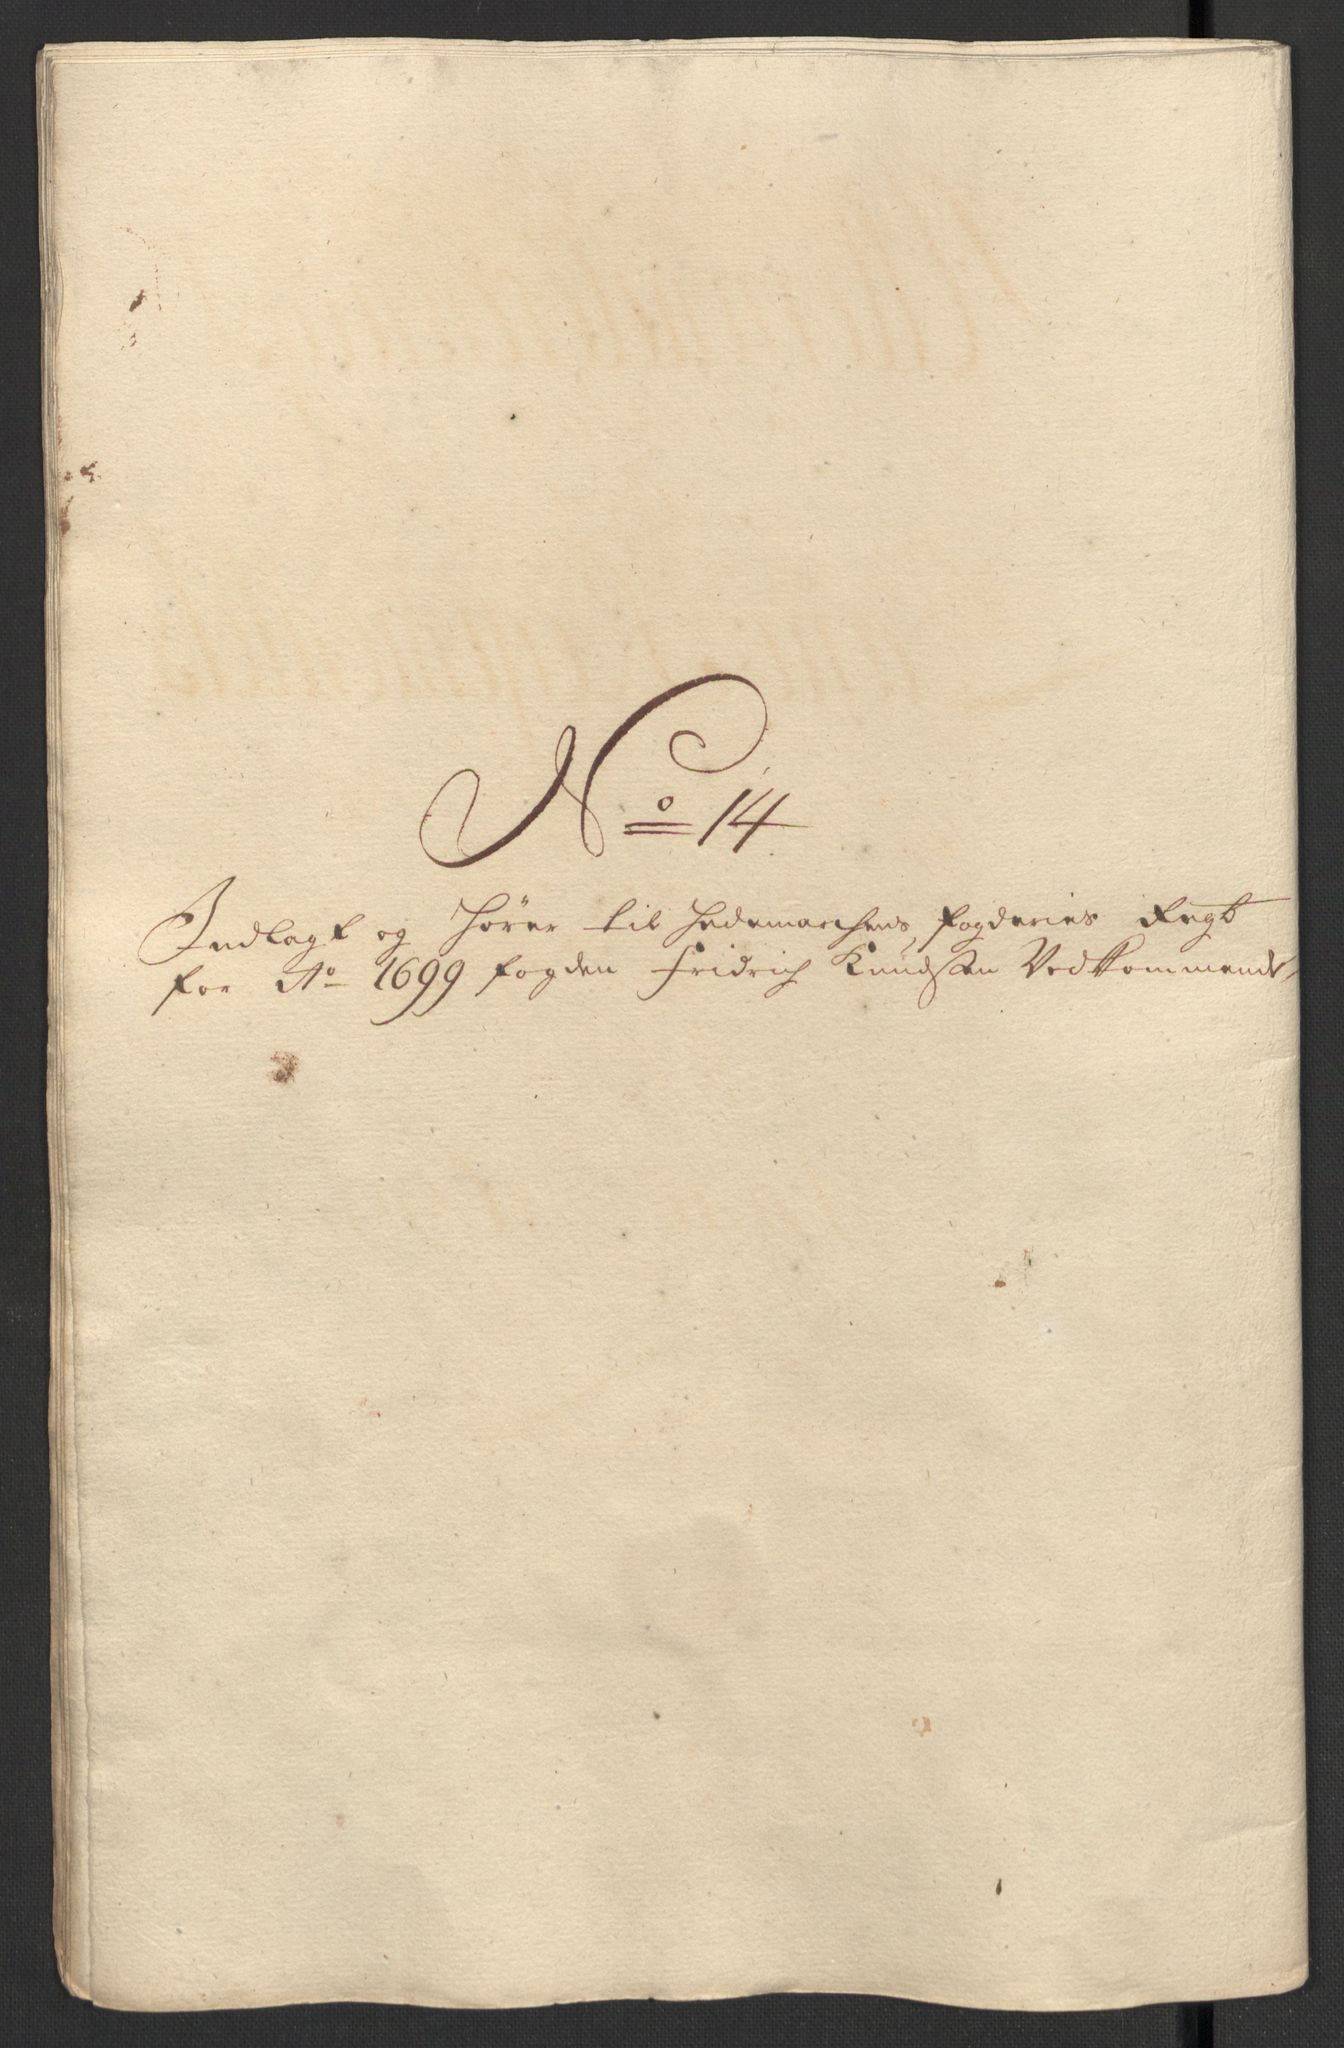 No 14
Indlagt og hører til Hedemarchens fogderies Regb
for Ao 1699 fogden Fridrich Knudssen Vedkommende